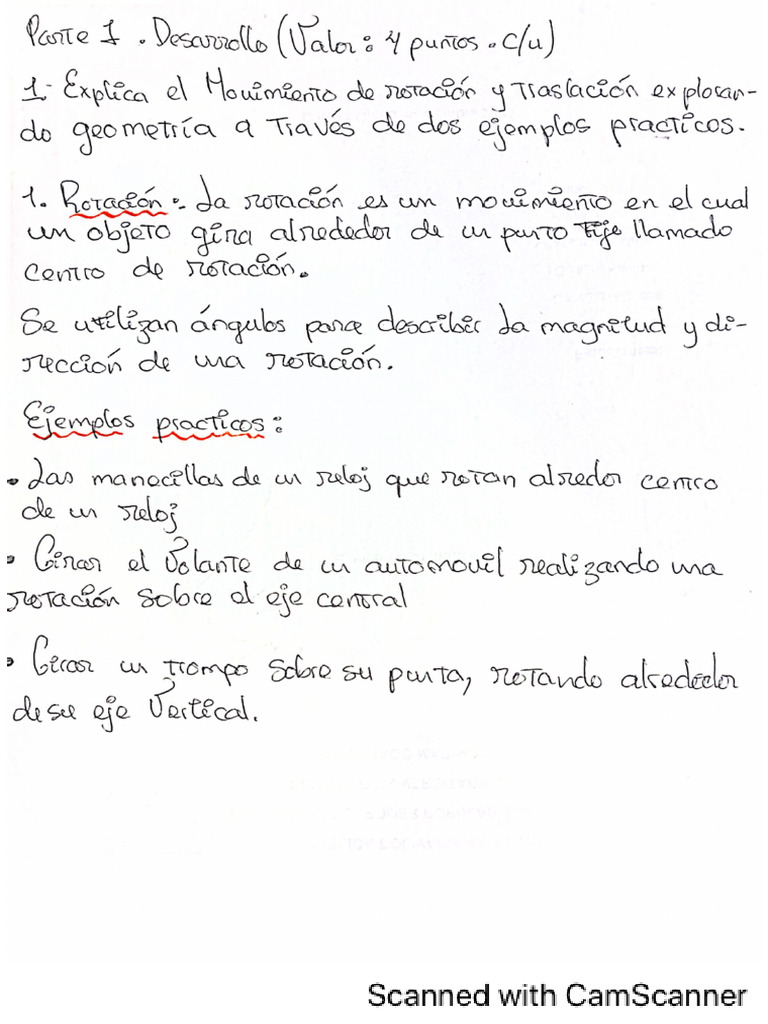 Parte 1 . Desarrollo (Valor: 4 puntos . c/u)
1- Explica el Movimiento de rotación y Traslación exploran-
do geometría a Través de dos ejemplos practicos.
1. Rotación: La rotación es un movimiento en el cual
un objeto gira alrededor de un punto fije llamado
centro de rotación.
Se utilizan ángulos para describir la magnitud y di-
rección de una rotación.
Ejemplos practicos:
• Las manecillas de un reloj que rotan alredor centro
de un reloj
• Girar el Volante de un automovil realizando una
rotación sobre el eje central
• Girar un trompo sobre su punta, rotando alrededor
de su eje Vertical.
Scanned with CamScanner